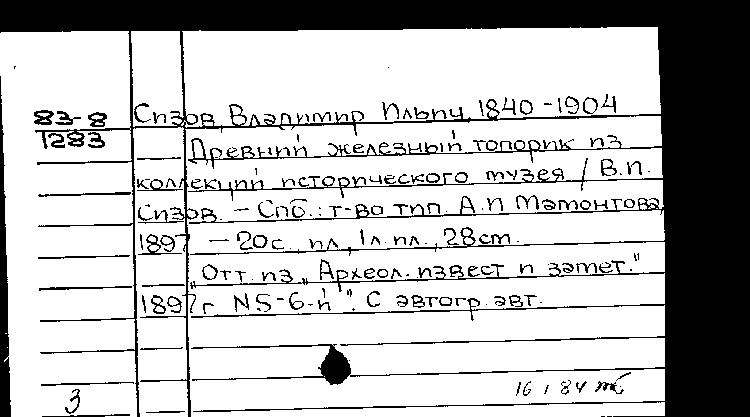 83-8
1283
Сизов, Владимир Ильич, 1840-1904
Древний железный топорик из
коллекций исторического музея / В.И.
Сизов. - Спб.: т-во тип. А.И Мамонтова,
1897 - 20с. ил., 1л.ил., 28см.
"Отт из "Археол. извест и замет."
1897г N5-6-й". С автогр. авт.
3
16 1 84